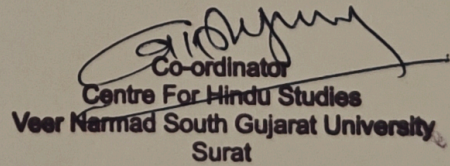 Co-ordinator
Centre For Hindu Studies
Veer Narmad South Gujarat University
Surat